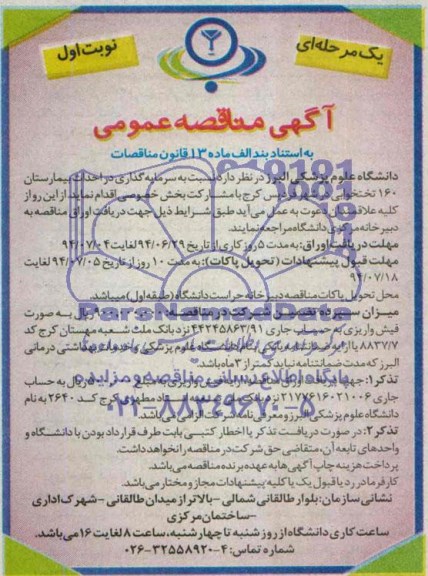 یک مرحله‌ای
نوبت اول
آگهی مناقصه عمومی
به استناد بند الف ماده ۱۳ قانون مناقصات
دانشگاه علوم پزشکی البرز در نظر دارد نسبت به سرمایه گذاری در احداث بیمارستان
۱۶۰ تختخوابی در شهر فردیس کرج با مشارکت بخش خصوصی اقدام نماید. از این رو از
کلیه علاقمندان دعوت به عمل می آید طبق شرایط ذیل جهت دریافت اوراق مناقصه به
دبیرخانه مرکزی دانشگاه مراجعه نمایند.
مهلت دریافت اوراق: به مدت ۵ روز کاری از تاریخ ۹۴/۰۶/۲۹ لغایت ۹۴/۰۷/۰۴
مهلت قبول پیشنهادات (تحویل پاکات): به مدت ۱۰ روز از تاریخ ۹۴/۰۷/۰۵ لغایت
۹۴/۰۷/۱۸
محل تحویل پاکات مناقصه دبیرخانه حراست دانشگاه (طبقه اول) میباشد.
میزان سپرده تضمین شرکت در مناقصه ریال به صورت
فیش واریزی به حساب جاری ۴۴۲۴۵۸۶۳/۹۱ نزد بانک ملت شعبه مهستان کرج کد
۸۸۳۷/۷ یا ارایه ضمانتنامه بانکی بنام دانشگاه علوم پزشکی و خدمات بهداشتی درمانی
البرز که مدت ضمانتنامه نباید کمتر از ۳ ماه باشد.
تذکر۱: جهت دریافت اسناد مناقصه ارایه فیش واریزی به مبلغ ریال به حساب
جاری ۲۱۷۷۶۱۶۰۲۱۰۰۶ نزد بانک شعبه مطهری کرج کد ۲۶۴۰ به نام
دانشگاه علوم پزشکی البرز و معرفی نامه شرکت الزامی می باشد.
تذکر۲: در صورت دریافت تذکر یا اخطار کتبی بابت طرف قرارداد بودن با دانشگاه و
واحدهای تابعه آن، متقاضی حق شرکت در مناقصه را نخواهد داشت.
پرداخت هزینه چاپ آگهی ها به عهده برنده مناقصه می باشد.
کارفرما در رد یا قبول یک یا کلیه پیشنهادات مجاز و مختار می باشد.
نشانی سازمان: بلوار طالقانی شمالی – بالاتر از میدان طالقانی – شهرک اداری
– ساختمان مرکزی
ساعت کاری دانشگاه از روز شنبه تا چهارشنبه، ساعت ۸ لغایت ۱۶ می باشد.
شماره تماس: ۴-۳۲۵۵۸۹۲۰-۰۲۶
پایگاه اطلاع رسانی مناقصه و مزایده
۰۲۱-۸۸۳۴۹۶۷۰-۵